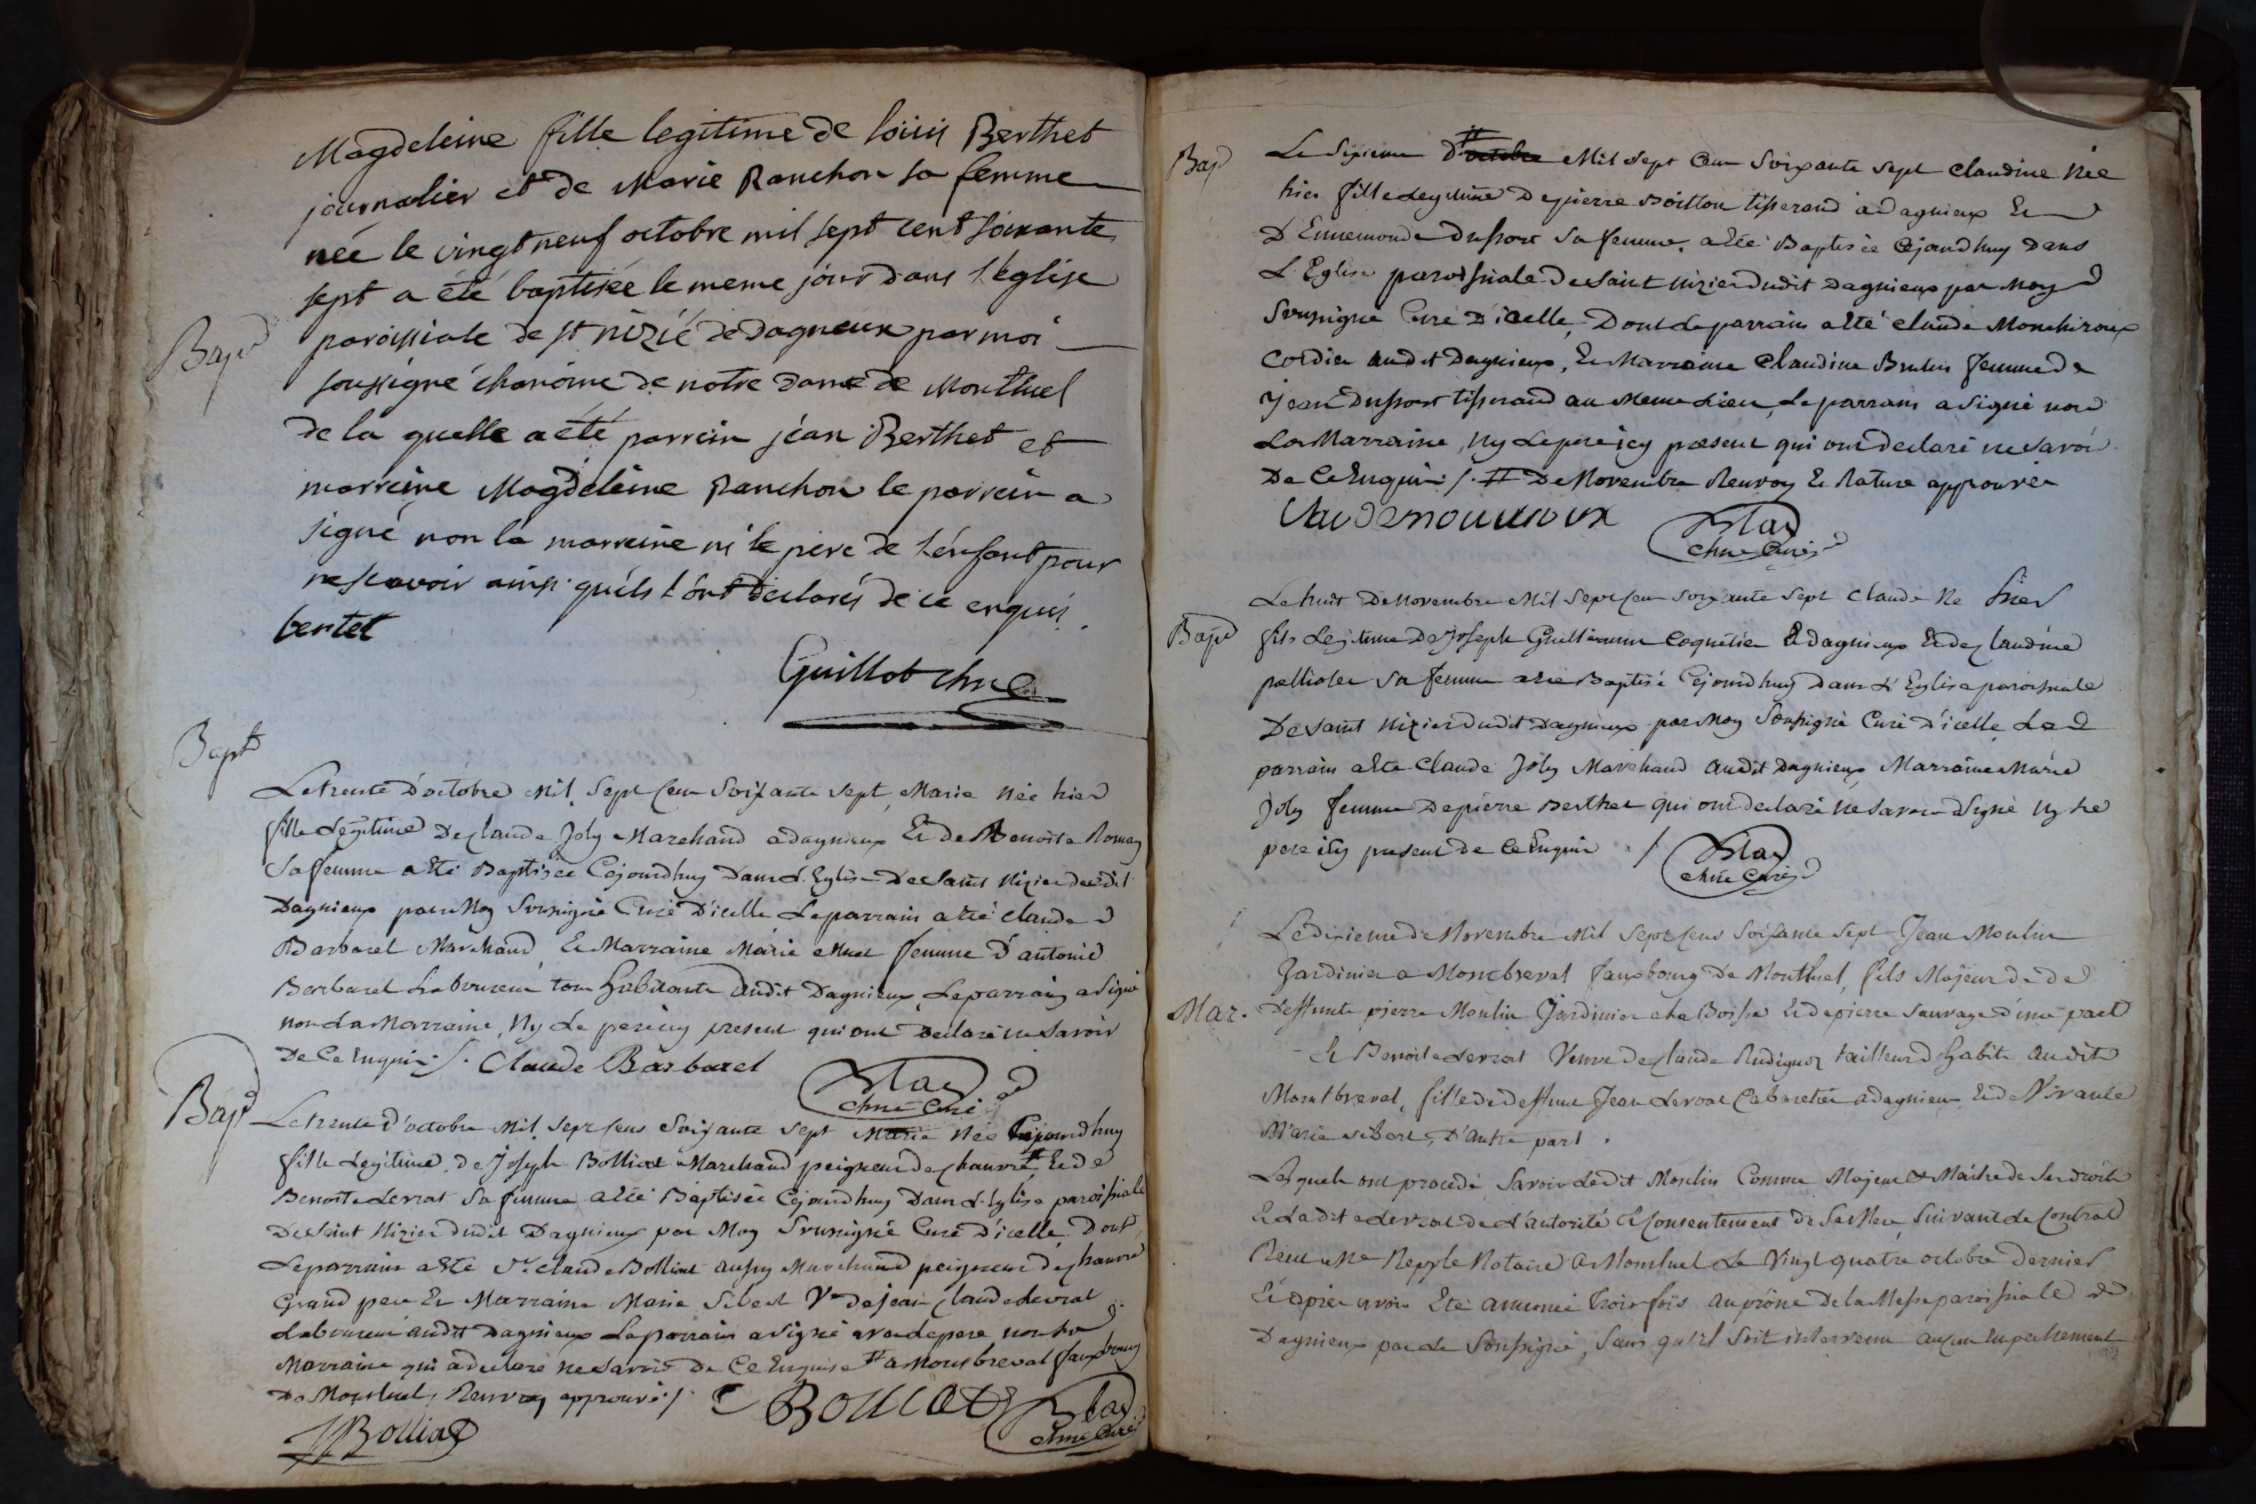 Magdeleine fille legitime de loüis Berthet
journalier et de Marie Ranchon sa femme
née le vingt neuf octobre mil sept cent soixante
sept a été baptisée le meme jour dans l'eglise
Bap
paroissiale de st nizié de dagneux par moi
soussigné chanoine de notre dame de Montluel
de la quelle a été parrein jéan Berthet et
marreine Magdeleine Ranchon le parrein a
signé non la marreine ni le pere de l'énfant pour
ne scavoir ainsi qu'ils l'ont declarés de ce enquis.
bertet
Guillot chne
Bapt
Le trente d'octobre Mil Sept Cens Soixante Sept Marie Née hier
fille Légitime De Claude Joly Marchand a dagnieux Et de Benoite Romay
Sa femme a été Baptisée Cejourdhuy Dans L'Eglise De Saint Nizier dudit
Dagnieux par Moy Soussigné Curé D'icelle Le parrain a été Claude
Barbaret Marchand, Et Marraine Marie femme D'antoine
Barbaret Laboureur tous habitants dudit Dagnieux, Le parrain a Signé
non La Marraine, Ny Le pere icy present qui ont Declaré ne Savoir
De Ce Enquis ./. Claude Barbaret
chne Curé
Bap
Le trente d'octobre Mil Sept Cens Soixante Sept Marie Née Cejourdhuy
fille Légitime de Joseph Bolliat Marchand peigneur de Chanvre # Et de
Benoite Levrat Sa femme a été Baptisée Cejourdhuy Dans L'Eglise paroissiale
De Saint Nizier dudit Dagnieux par Moy Soussigné Curé D'icelle Dont
Le parrain a été Sr. Claude Bolliat aussy Marchand peigneur de Chanvre
Grand pere Et Marraine Marie Sibert Ve de jean Claude Levrat
Laboureur audit Dagnieux Le parrain a Signé avec le pere non la
Marraine qui a declaré ne Savoir De Ce Enquise # a Montbreval fauxbourg
De Montluel, Renvoy approuvé ./. C Bolliat
chne Curé
J Bolliat
Bap
Le Sixieme D'# octobre Mil Sept Cens Soixante Sept Claudine Née
hier fille Legitime De pierre Boitton tisserand a dagnieux Et
D'Ennemonde Dussort Sa femme, a été Baptisée Cejourdhuy Dans
L'Eglise paroissiale De Saint Nizier dudit Dagnieux par Moy
Soussigné Curé D'icelle, Dont Le parrain a été Claude Monchiroux
Cordier audit Dagnieux, Et Marraine Claudine Brulin femme De
Jean Dussort tisserand au Meme Lieu, Le parrain a Signé non
La Marraine, Ny Le pere icy present qui ont declaré ne Savoir
De Ce Enquis ./. # De Novembre Renvoy Et Rature approuvée
chne Curé
Le huit De Novembre Mil Sept Cens Soixante Sept Claude Né hier
Bap
fils Legitime De Joseph Guillaume Coquetier a dagnieux Et de Claudine
Sa femme a été Baptisé Cejourdhuy Dans L'Eglise paroissiale
De Saint Nizier dudit Dagnieux par Moy Soussigné Curé D'icelle Le
parrain a été Claude Joly Marchand audit Dagnieux Marraine Marie
Joly femme De pierre Berthet qui ont declaré ne Savoir Signé Ny Le
pere icy present de Ce Enquis ./.
chne Curé
Le dixieme de Novembre Mil Sept Cens Soixante Sept Jean Moulin
Jardinier a Montbreval fauxbourg De Montluel, fils Majeur de
Mar.
deffunt pierre Moulin Jardinier a la Boisse Et de pierre Sauvage D'une part
Et Benoite Levrat Veuve De Claude tailleur D'habits audit
Montbreval, fille De deffunt Jean Levrat Cabaretier a dagnieu Et de Vivante
Marie Sibert, D'autre part.
Lesquels ont procedé Savoir Ledit Moulin Comme Majeur & Maitre de Ses droits
Et Ladite Levrat de L'autorité Et Consentement de Sa Mere Suivant Le Contrat
Receu Me Notaire a Montluel Le Vingt quatre octobre Dernier
Et aprés avoir Eté annoncé trois fois au prône De la Messe paroissiale de
Dagnieux par Le Soussigné, Sans qu'il Soit intervenu aucun Empechement